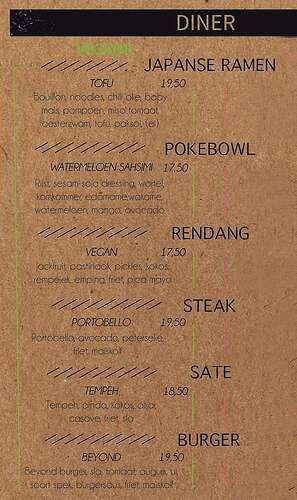 DINER
JAPANSE RAMEN
TOFU 19,50
Bouillon, noodles, chili olie, baby
mais, pompoen, miso tomaat,
oesterzwam, tofu, paksoi, (ei)
POKEBOWL
WATERMELOEN SAHSIMI 17,50
Rijst, sesam-soja dressing, wortel,
komkommer, edamame, wakame,
watermeloen, mango, avocado
RENDANG
VEGAN 17,50
Jackfruit, pastinaak, pickles, kokos,
rempejek, emping, friet, pica mayo
STEAK
PORTOBELLO 19,50
Portobello, avocado, peterselie,
friet, maiskolf
SATE
TEMPEH 18,50
Tempeh, pinda, kokos, atjar,
casave, friet, sla
BURGER
BEYOND 19,50
Beyond burger, sla, tomaat, augurk, ui,
soort spek, burgersaus, friet, maiskolf